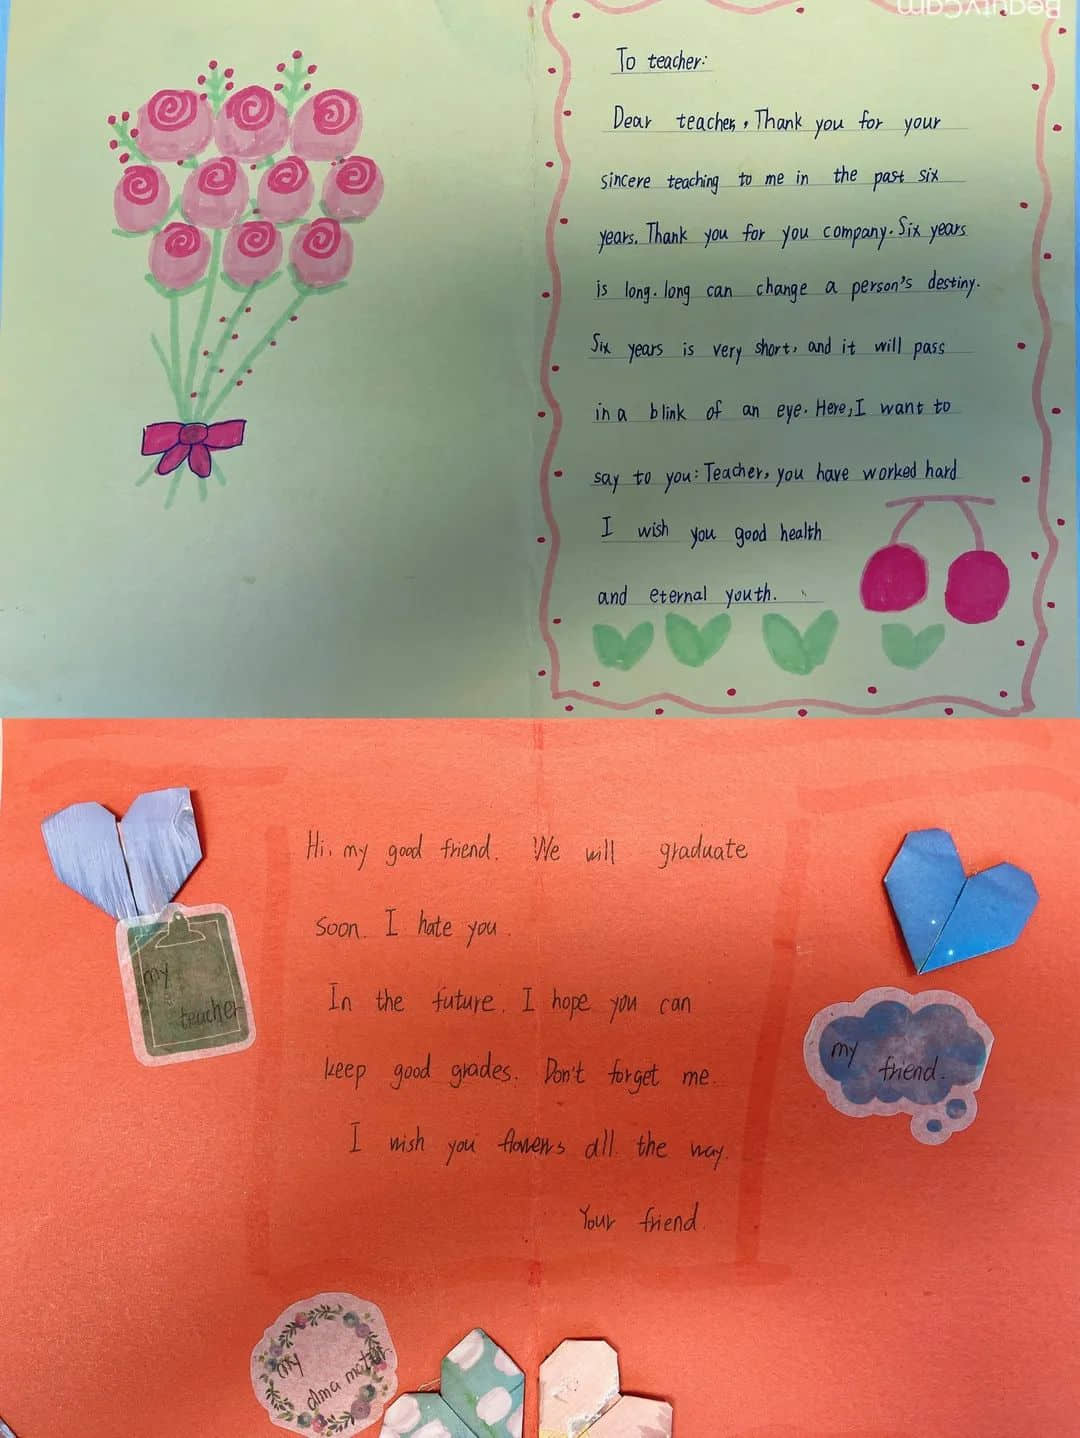 BeautyCam
To teacher:
Dear teacher, Thank you for your
sincere teaching to me in the past six
years. Thank you for you company. Six years
is long. long can change a person's destiny.
Six years is very short, and it will pass
in a blink of an eye. Here, I want to
say to you: Teacher, you have worked hard
I wish you good health
and eternal youth.
Hi, my good friend. We will graduate
soon. I hate you.
In the future. I hope you can
keep good grades. Don't forget me.
I wish you flowers all the way.
Your friend.
my
teacher
my
friend.
my
alma mater